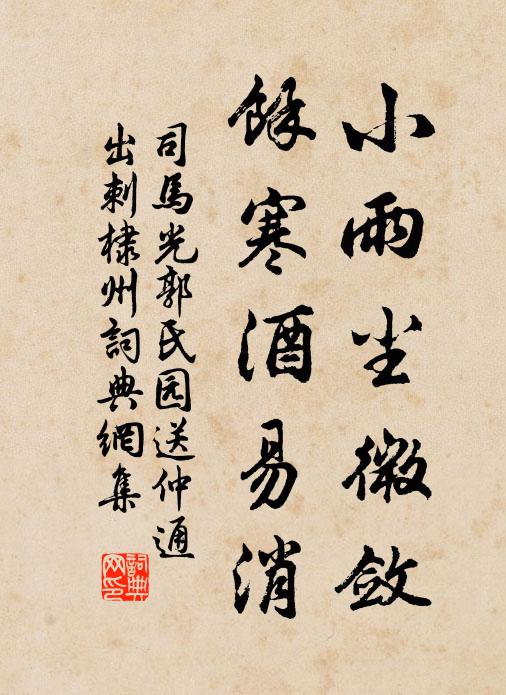 小雨尘微敛
餘寒酒易消
司馬光郭氏园送仲通
出刺棣州詞典網集
詞典
网印